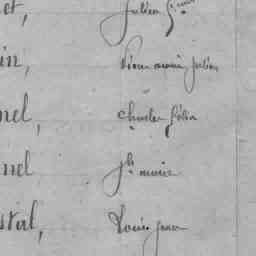 et, Julien
in, Pierre marie Julien
nel, charles félix
nel Jh marie
stal, Louis Jean